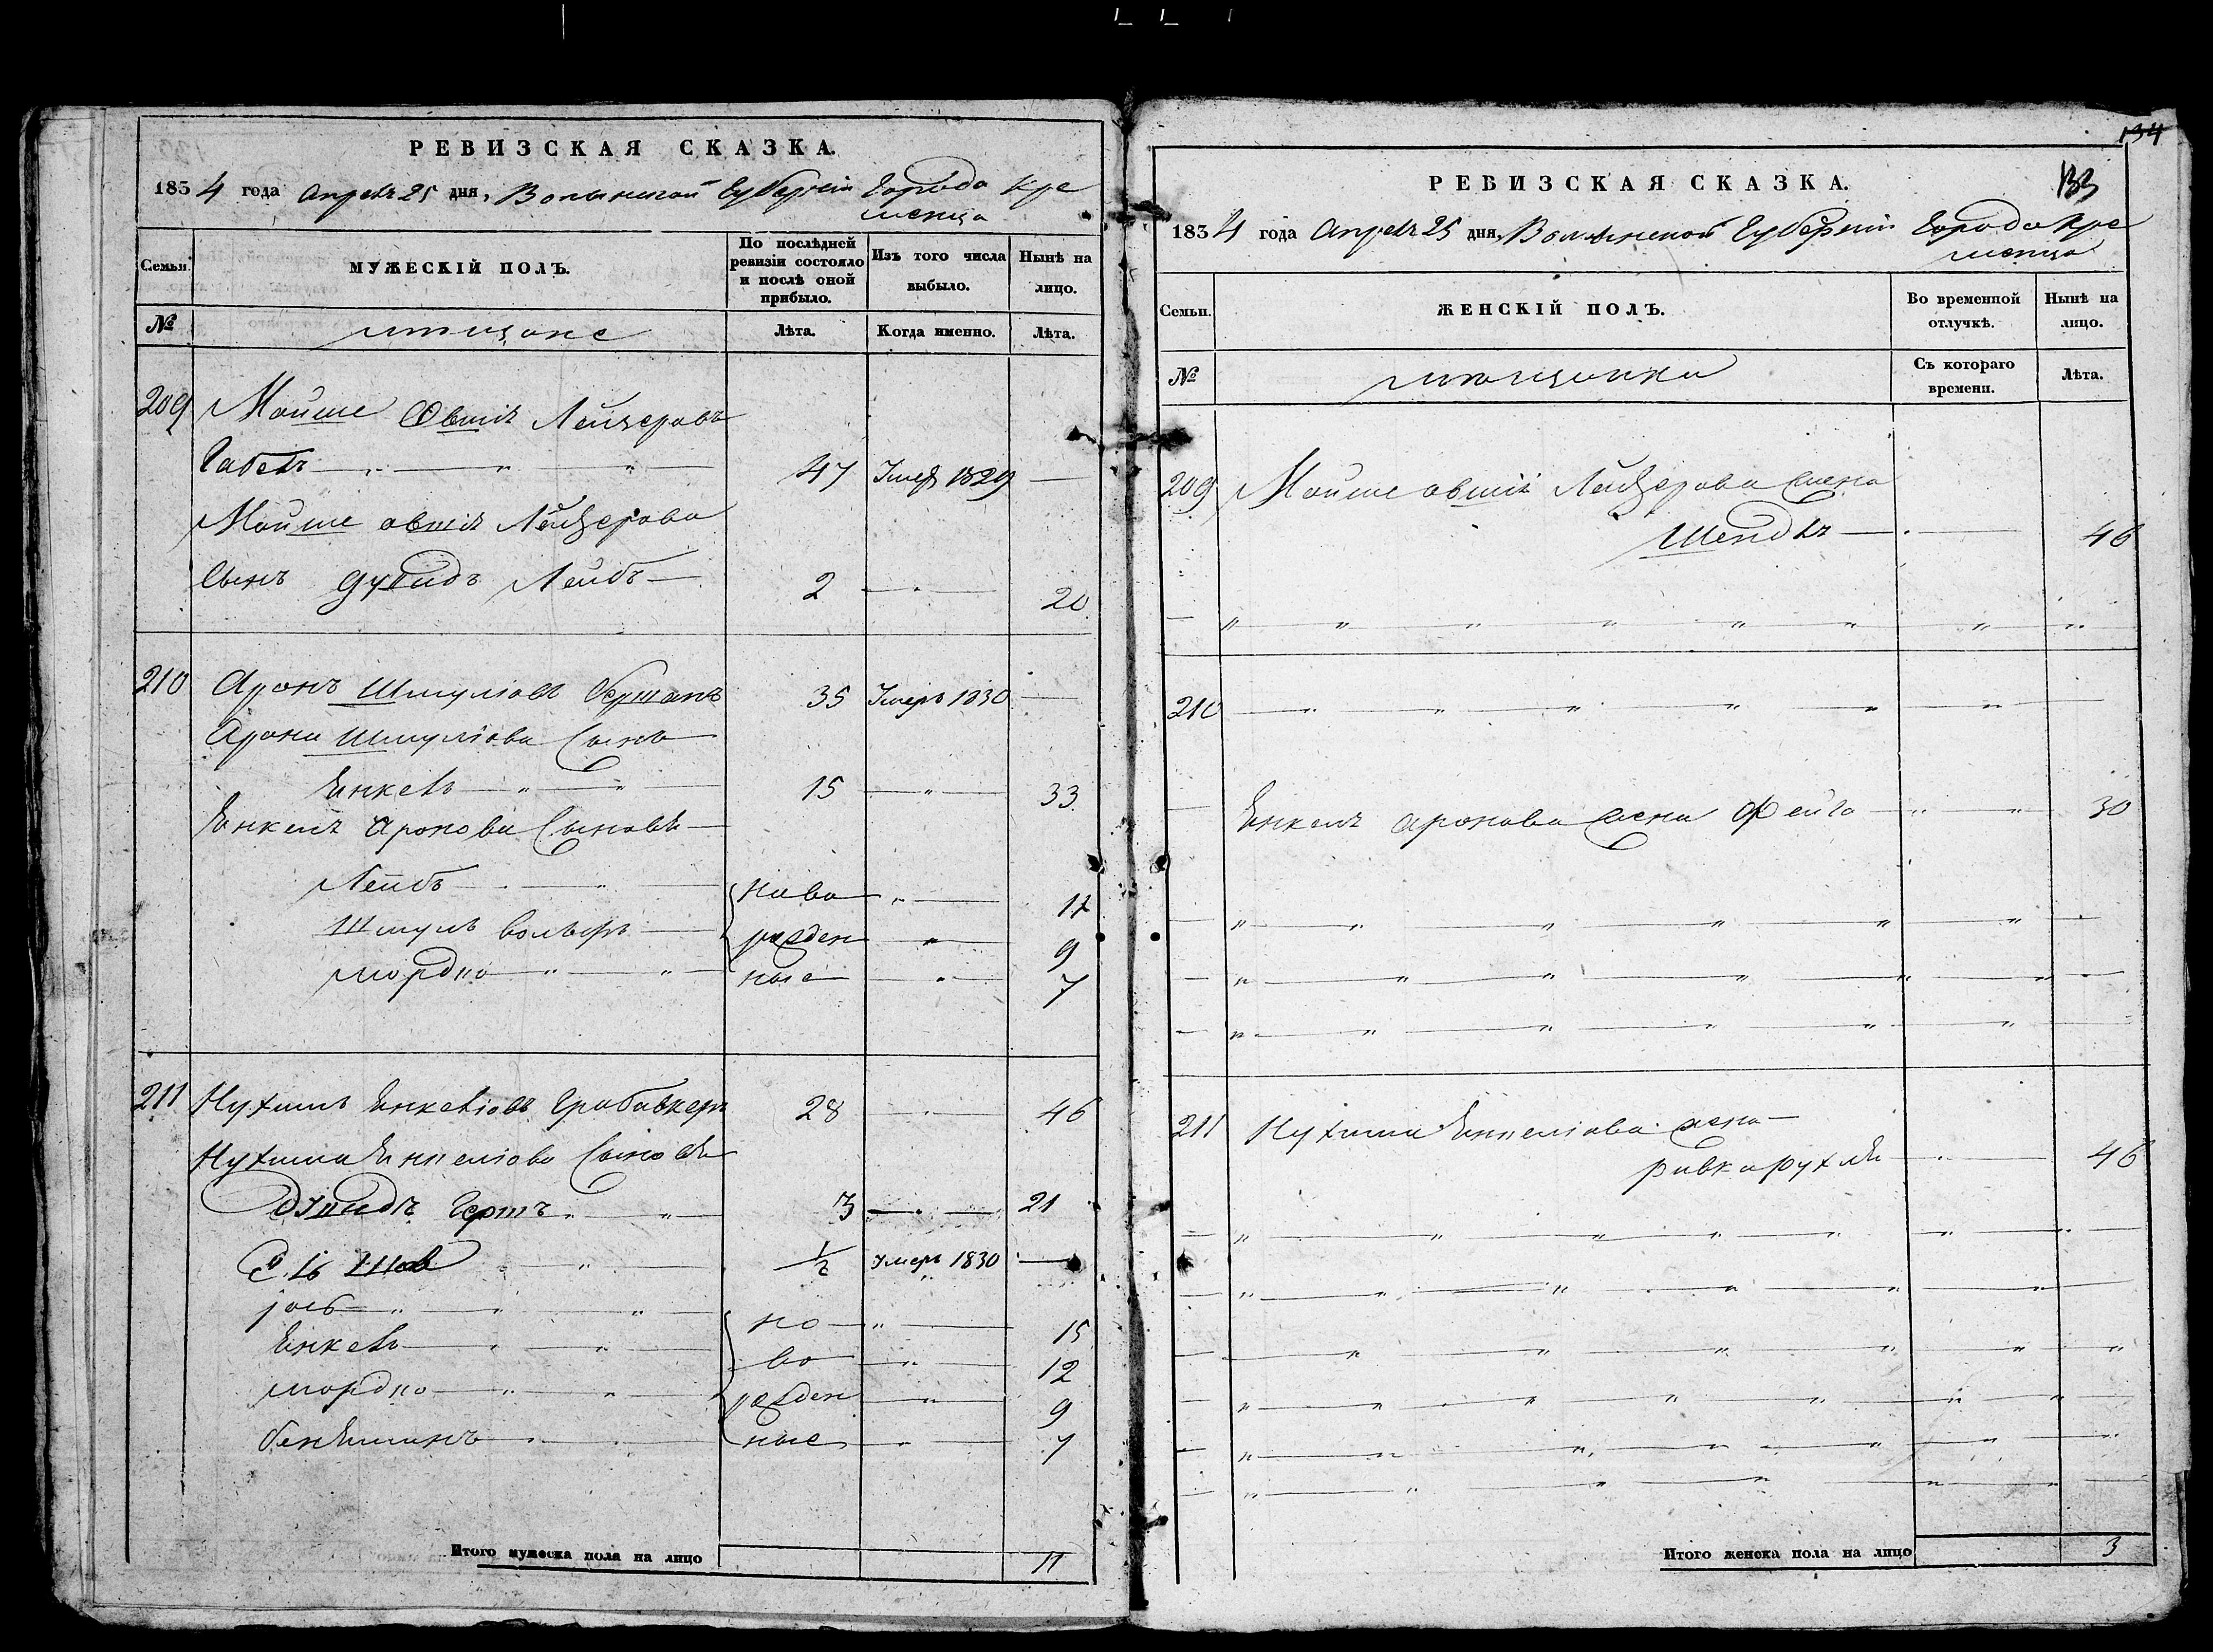 РЕВИЗСКАЯ СКАЗКА.
1834 года Апреля 25 дня, Волынской Губернии Города Кре
менца
Семьи.
МУЖЕСКІЙ ПОЛЪ.
По послѣдней ревизіи состояло и послѣ оной прибыло.
Изъ того числа выбыло.
Нынѣ на лицо.
№
мещане
Лѣта.
Когда именно.
Лѣта.
209 Мойше Овшія Лейзеровъ
Габель 47 Умер 1829 —
Мойше овшія Лейзерова
Сынъ Дувидъ Лейбъ 2 — 20
210 Аронъ Шмуліовъ 35 Умеръ 1830 —
Арона Шмуліова Сынъ
Янкель 15 — 33
Янкеля Аронова Сыновья
Лейбъ ново 12
Шмуль Вольфъ рожден 9
Мордко ные 7
211 Нухимъ Янкеліовъ 28 — 46
Нухима Янкеліова Сыновья
Дувидъ Герш 3 — 21
1/2 Умеръ 1830 —
Іось но 15
Янкель во 12
Мордко рожден 9
Беньяминъ ные 7
Итого мужеска пола на лицо 11
134
133
РЕВИЗСКАЯ СКАЗКА.
1834 года Апреля 25 дня, Волынской Губернии Города Кре
менца
Семьи.
ЖЕНСКІЙ ПОЛЪ.
Во временной отлучкѣ.
Нынѣ на лицо.
№
мещанки
Съ котораго времени.
Лѣта.
209 Мойше овшія Лейзерова жена
Шендля 46
210
Янкеля Аронова жена Фейга 30
211 Нухима Янкеліова жена
Ривка Рухля 46
Итого женска пола на лицо 3